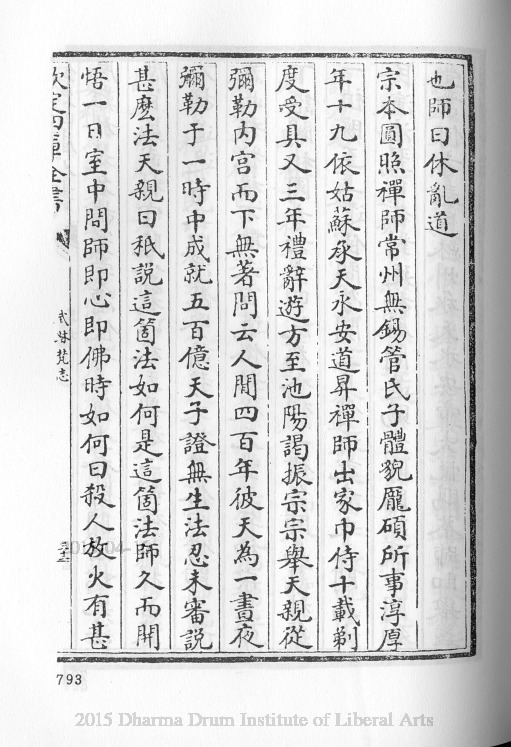 也師曰休亂道
宗本圓照禪師常州無錫管氏子體貌厖碩所事淳厚
年十九依姑蘇承天永安道昇禪師出家巾侍十載剃
度受具又三年禮辭遊方至池陽謁振宗宗舉天親從
彌勒内宫而下無著問云人間四百年彼天為一晝夜
彌勒于一時中成就五百億天子證無生法忍未審説
甚麽法天親曰秖説這箇法如何是這箇法師久而開
悟一日室中問師即心即佛時如何曰殺人放火有甚
欽定四庫全書
武林梵志
793
2015 Dharma Drum Institute of Liberal Arts